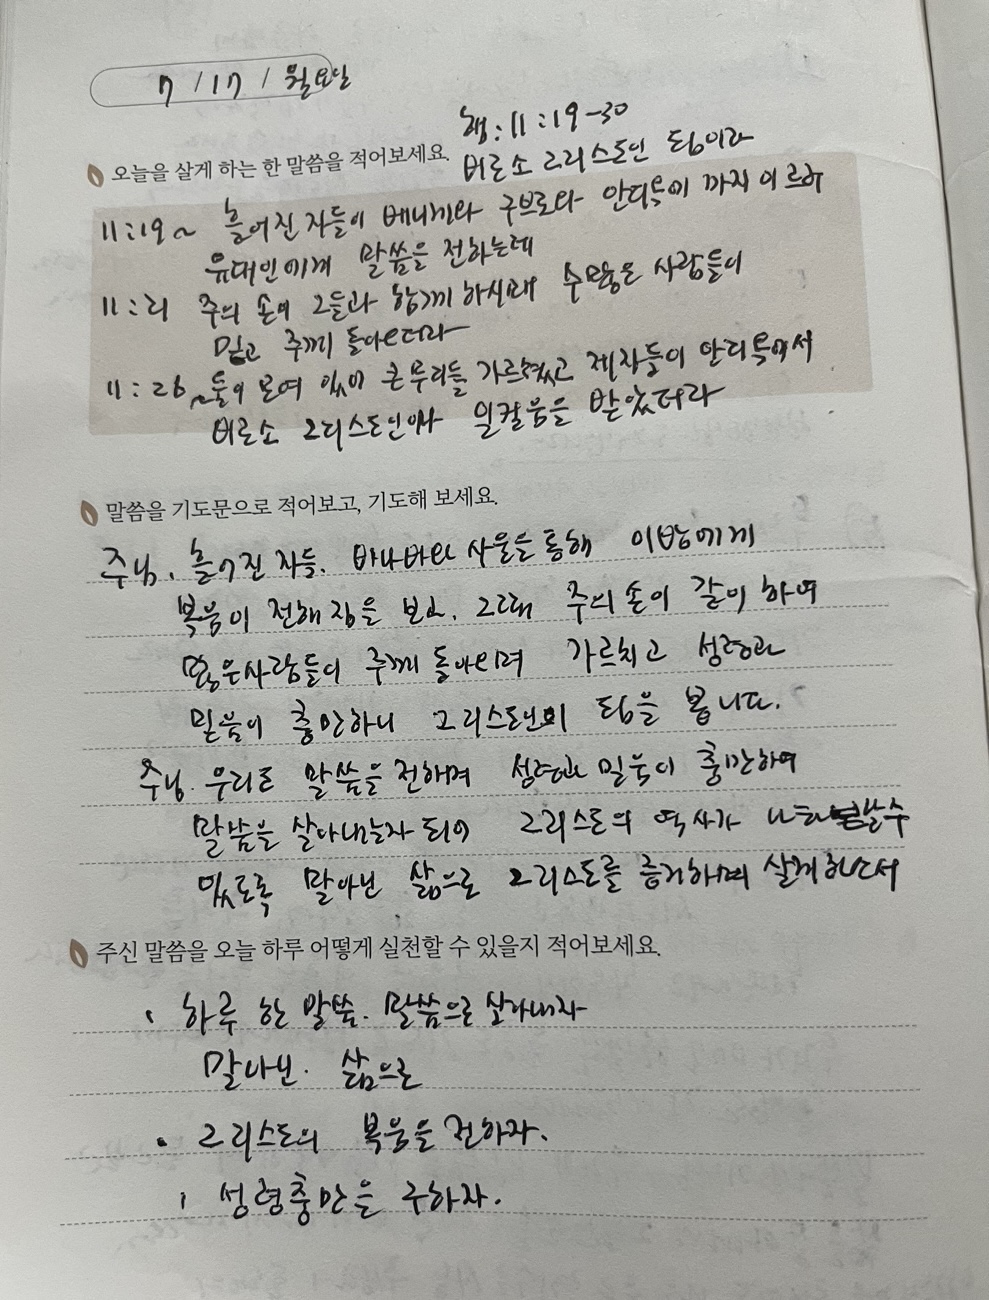 7 / 17 / 월요일
행 : 11 : 19-30
오늘을 살게 하는 한 말씀을 적어보세요.
비로소 그리스도인 됨이라
11:19~ 흩어진 자들이 베니게와 구브로와 안디옥에 까지 이르러
유대인에게 말씀을 전하는데
11:21 주의 손이 그들과 함께 하시매 수많은 사람들이
믿고 주께 돌아오더라
11:26 ~둘이 모여 있어 큰 무리를 가르쳤고 제자들이 안디옥에서
비로소 그리스도인이라 일컬음을 받았더라
말씀을 기도문으로 적어보고, 기도해 보세요.
주님, 흩어진 자들, 바나바와 사울을 통해 이방에게
복음이 전해 짐을 보고, 그때 주의 손이 같이 하여
많은사람들이 주께 돌아오며 가르치고 성령과
믿음이 충만하니 그리스도인의 됨을 봅니다.
주님. 우리도 말씀을 전하며 성령과 믿음이 충만하여
말씀을 살아내는자 되어 그리스도의 역사가 나타날수
있도록 말아닌 삶으로 그리스도를 증거하며 살게하소서
주신 말씀을 오늘 하루 어떻게 실천할 수 있을지 적어보세요.
· 하루 한 말씀. 말씀으로 살아내자
말아닌. 삶으로
· 그리스도의 복음을 전하자.
· 성령충만을 구하자.